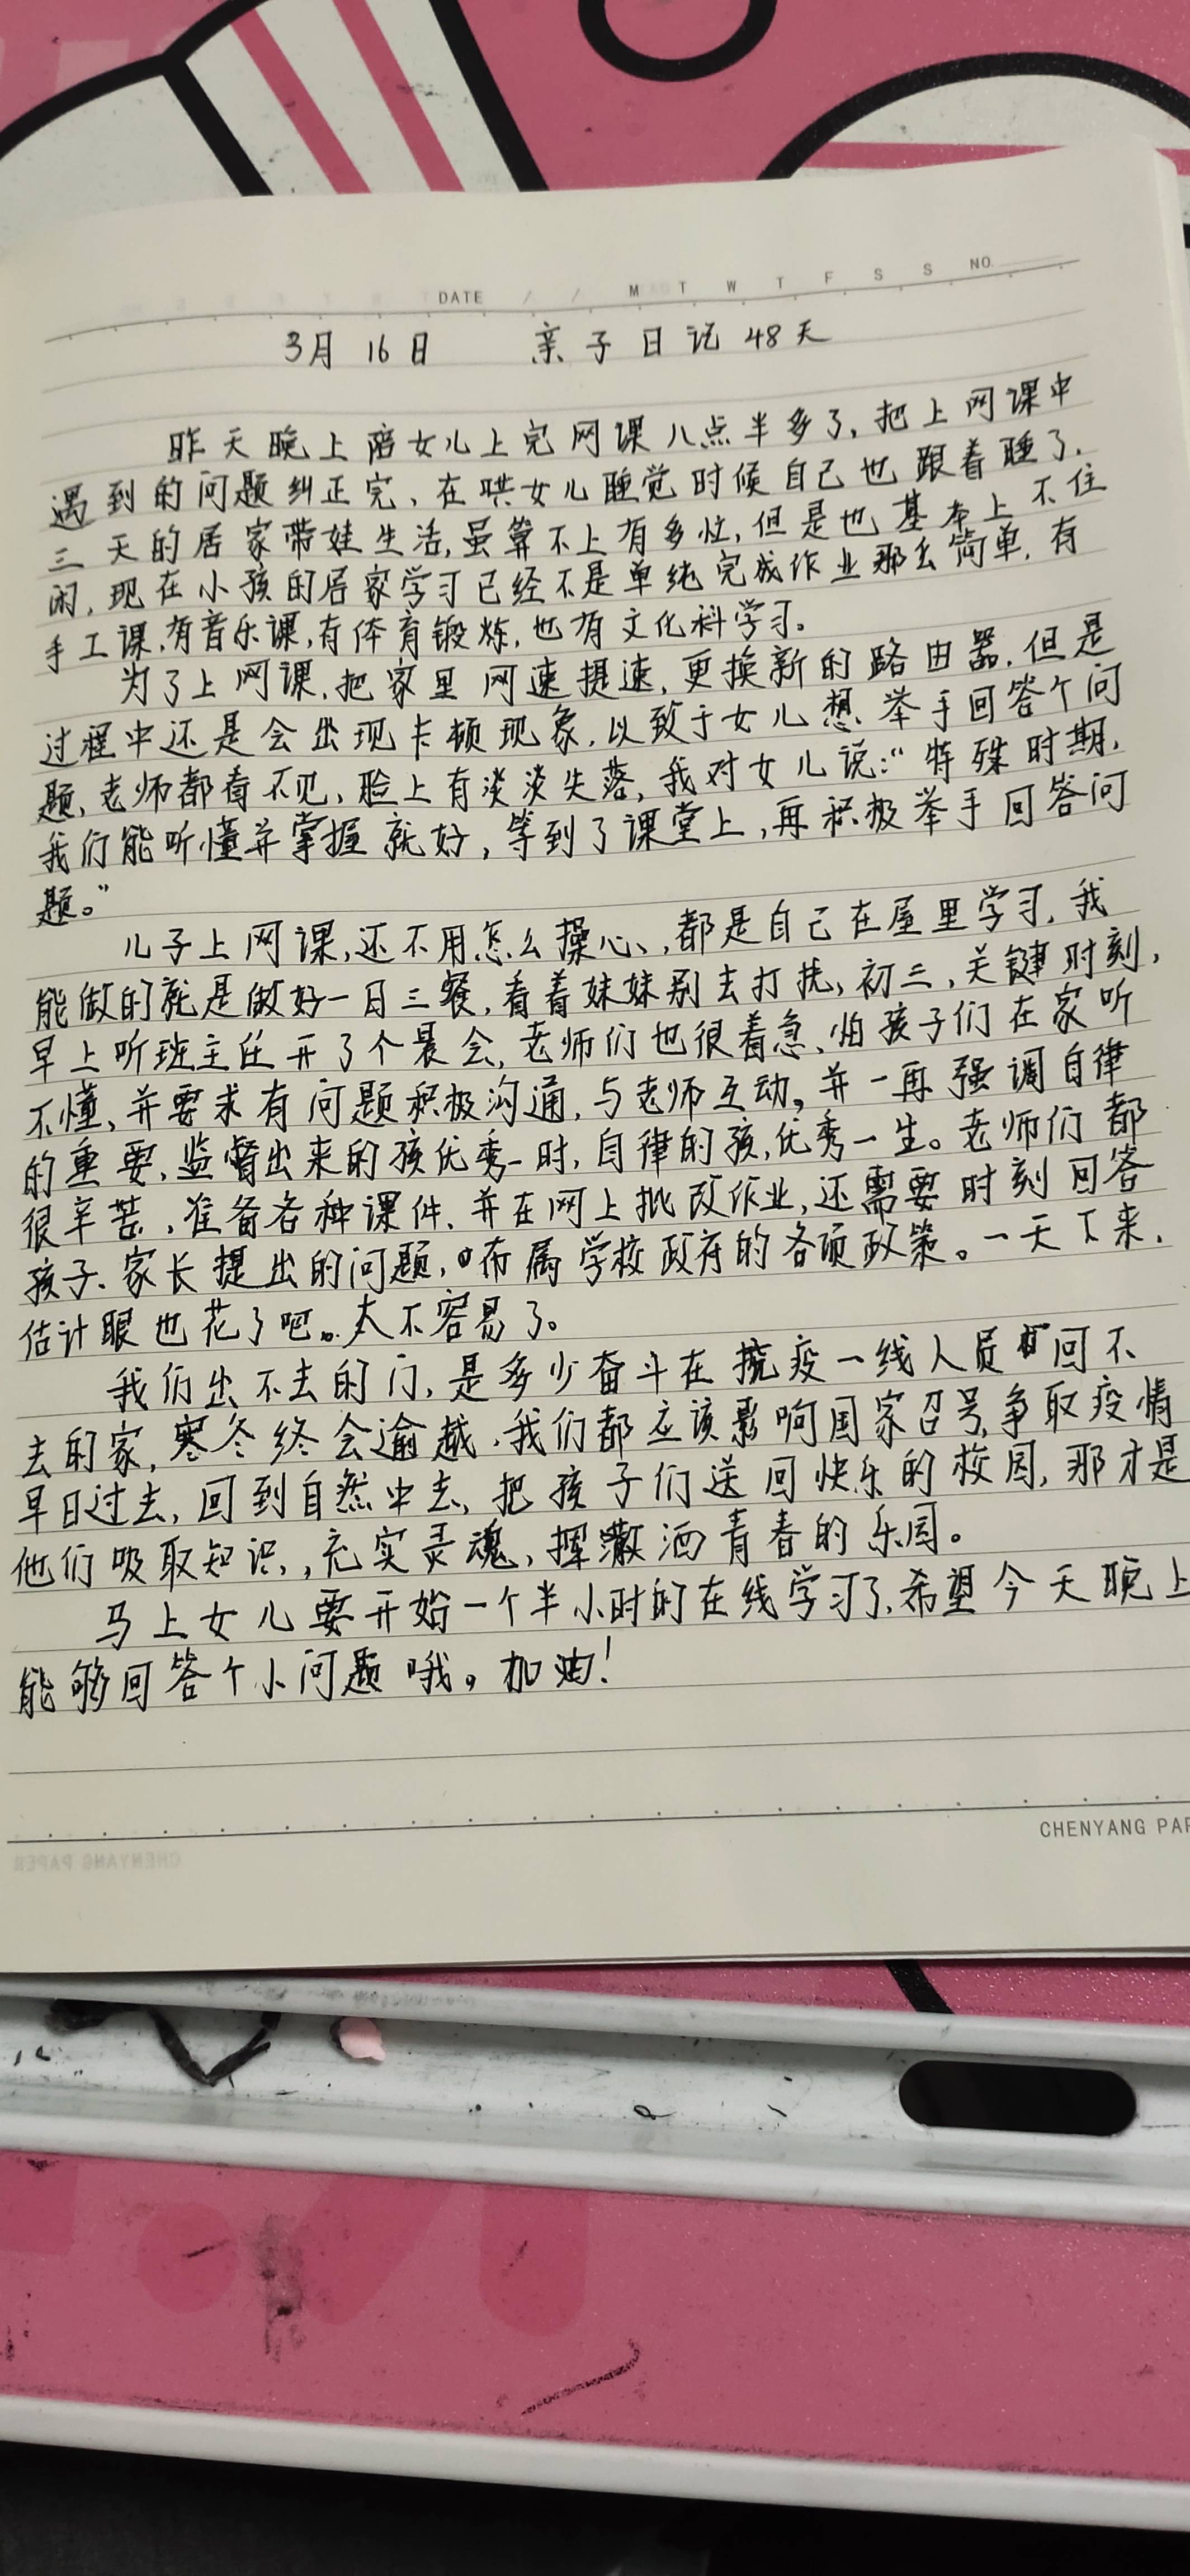 DATE / / M T W T F S S NO.
3月16日 亲子日记48天
昨天晚上陪女儿上完网课八点半多了,把上网课中
遇到的问题纠正完、在哄女儿睡觉时候自己也跟着睡了.
三天的居家带娃生活,虽算不上有多忙,但是也基本上不住
闲,现在小孩的居家学习已经不是单纯完成作业那么简单,有
手工课,有音乐课,有体育锻炼,也有文化科学习。
为了上网课,把家里网速提速,更换新的路由器,但是
过程中还是会出现卡顿现象,以致于女儿想举手回答个问
题,老师都看不见、脸上有淡淡失落,我对女儿说:“特殊时期,
我们能听懂并掌握就好,等到了课堂上,再积极举手回答问
题。”
儿子上网课,还不用怎么操心、,都是自己在屋里学习,我
能做的就是做好一日三餐,看着妹妹别去打扰,初三,关键时刻,
早上听班主任开了个晨会,老师们也很着急、怕孩子们在家听
不懂、并要求有问题积极沟通,与老师互动。并一再强调自律
的重要,监督出来的孩优秀一时,自律的孩,优秀一生。老师们都
很辛苦,准备各种课件、并在网上批改作业,还需要时刻回答
孩子、家长提出的问题,布属学校政府的各项政策。一天下来,
估计眼也花了吧。太不容易了。
我们出不去的门,是多少奋斗在抗疫一线人员回不
去的家,寒冬终会逾越,我们都应该影响国家召号,争取疫情
早日过去,回到自然中去,把孩子们送回快乐的校园,那才是
他们吸取知识,充实灵魂,挥洒青春的乐园。
马上女儿要开始一个半小时的在线学习了,希望今天晚上
能够回答个小问题哦。加油!
CHENYANG PAP